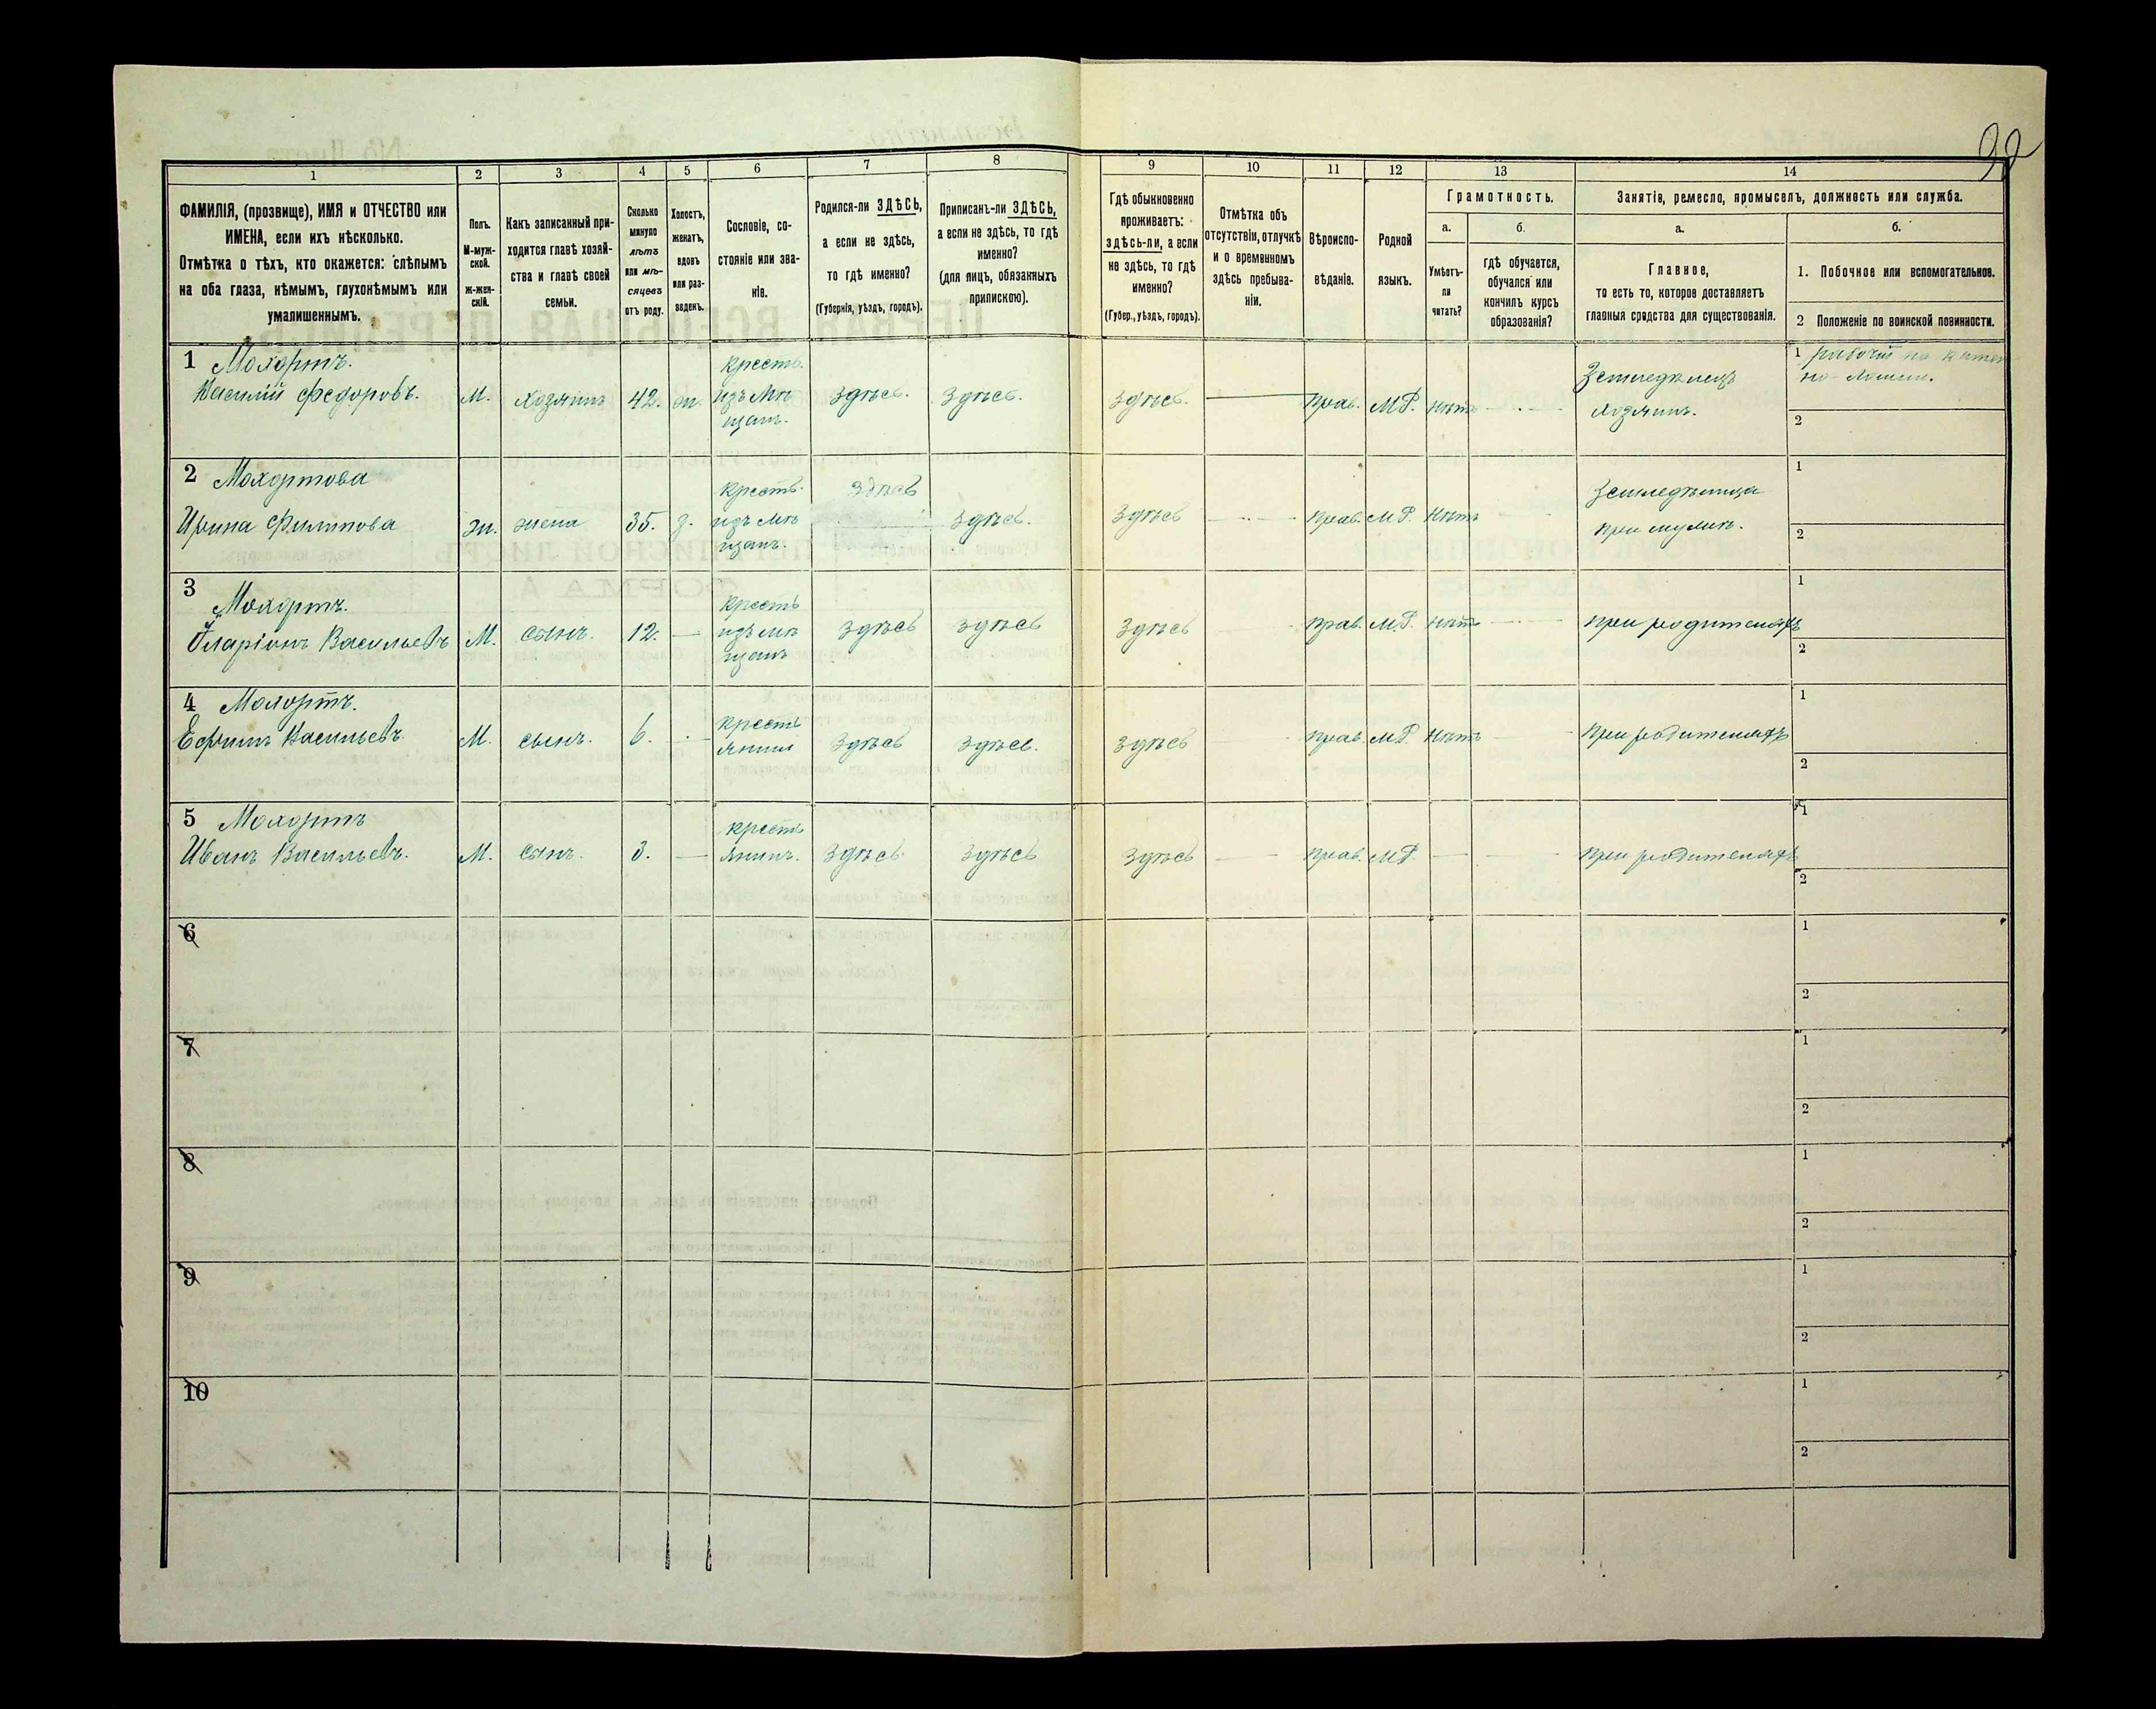 98
1 2 3 4 5 6 7 8 9 10 11 12 13 14
ФАМИЛІЯ, (прозвище), ИМЯ и ОТЧЕСТВО или
ИМЕНА, если ихъ нѣсколько.
Отмѣтка о тѣхъ, кто окажется: слѣпымъ
на оба глаза, нѣмымъ, глухонѣмымъ или
умалишеннымъ.
Полъ.
М-муж-
ской.
Ж-жен-
скій.
Какъ записанный при-
ходится главѣ хозяй-
ства и главѣ своей
семьи.
Сколько
минуло
лѣтъ
или мѣ-
сяцевъ
отъ роду.
Холостъ,
женатъ,
вдовъ
или раз-
веденъ.
Сословіе, со-
стояніе или зва-
ніе.
Родился-ли ЗДѢСЬ,
а если не здѣсь,
то гдѣ именно?
(Губернія, уѣздъ, городъ).
Приписанъ-ли ЗДѢСЬ,
а если не здѣсь, то гдѣ
именно?
(для лицъ, обязанныхъ
припискою).
Гдѣ обыкновенно
проживаетъ:
здѣсь-ли, а если
не здѣсь, то гдѣ
именно?
(Губер., уѣздъ, городъ).
Отмѣтка объ
отсутствіи, отлучкѣ
и о временномъ
здѣсь пребыва-
ніи.
Вѣроиспо-
вѣданіе.
Родной
языкъ.
Грамотность.
а.
Умѣетъ-
ли
читать?
б.
гдѣ обучается,
обучался или
кончилъ курсъ
образованія?
Занятіе, ремесло, промыселъ, должность или служба.
а.
Главное,
то есть то, которое доставляетъ
главныя средства для существованія.
б.
1. Побочное или вспомогательное.
2 Положеніе по воинской повинности.
1 Мохортъ.
Василій Федоровъ. М. хозяинъ 42. ж.
кресть.
изъ мѣ
щан.
здѣсь. здѣсь. здѣсь. Прав. М.Р. нѣтъ
Земледѣлецъ
хозяинъ.
1 рабочій на камен
но-ломни.
2
2 Мохортова
Ирина Филипова жн. жена 35. з.
кресть.
изъ мѣ
щанъ.
здѣсь здѣсь. здѣсь прав. М.Р. нѣтъ
земледѣлица
при мужѣ.
1
2
3 Мохортъ.
Иларіонъ Васильевъ М. сынъ. 12.
кресть
изъ мѣ
щанъ
здѣсь здѣсь здѣсь прав. М.Р. нѣтъ при родителяхъ
1
2
4 Мохортъ.
Ефимъ Васильевъ М. сынъ. 6.
кресть
янинъ
здѣсь здѣсь. здѣсь прав. М.Р. нѣтъ при родителяхъ
1
2
5 Мохортъ
Иванъ Васильевъ. М. сынъ. 3.
кресть
янинъ.
здѣсь. здѣсь здѣсь прав. М.Р. при родителяхъ
1
2
6
1
2
7
1
2
8
1
2
9
1
2
10
1
2